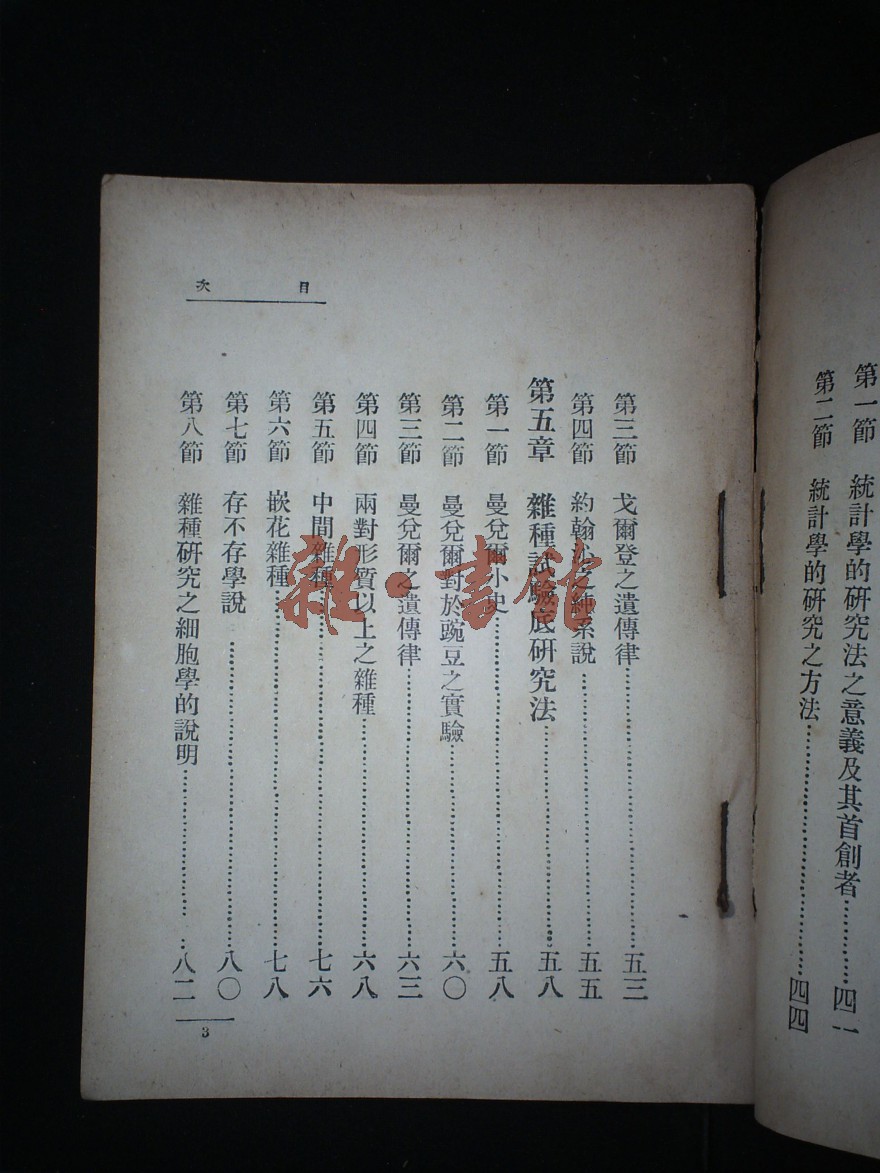 第一節 統計學的研究法之意義及其首創者…………四一
第二節 統計學的研究之方法…………四四
目次
第三節 戈爾登之遺傳律…………五三
第四節 約翰沁之純系說…………五五
第五章 雜種試驗底研究法…………五八
第一節 曼兌爾小史…………五八
第二節 曼兌爾對於豌豆之實驗…………六〇
第三節 曼兌爾之遺傳律…………六三
第四節 兩對形質以上之雜種…………六八
第五節 中間雜種…………七六
第六節 嵌花雜種…………七八
第七節 存不存學說…………八〇
第八節 雜種研究之細胞學的說明…………八二
3
雜·書館